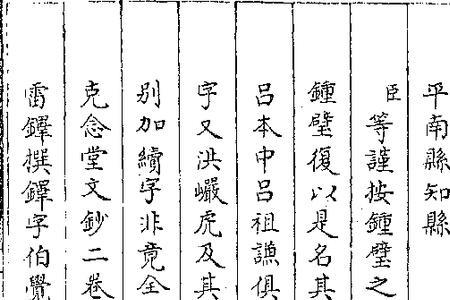 平南縣知縣
臣等謹按鍾璧之
鍾璧復以是名其
呂本中呂祖謙俱
字又洪巖虎及其
别加續字非竟全
克念堂文鈔二卷
雷鐸撰鐸字伯覺